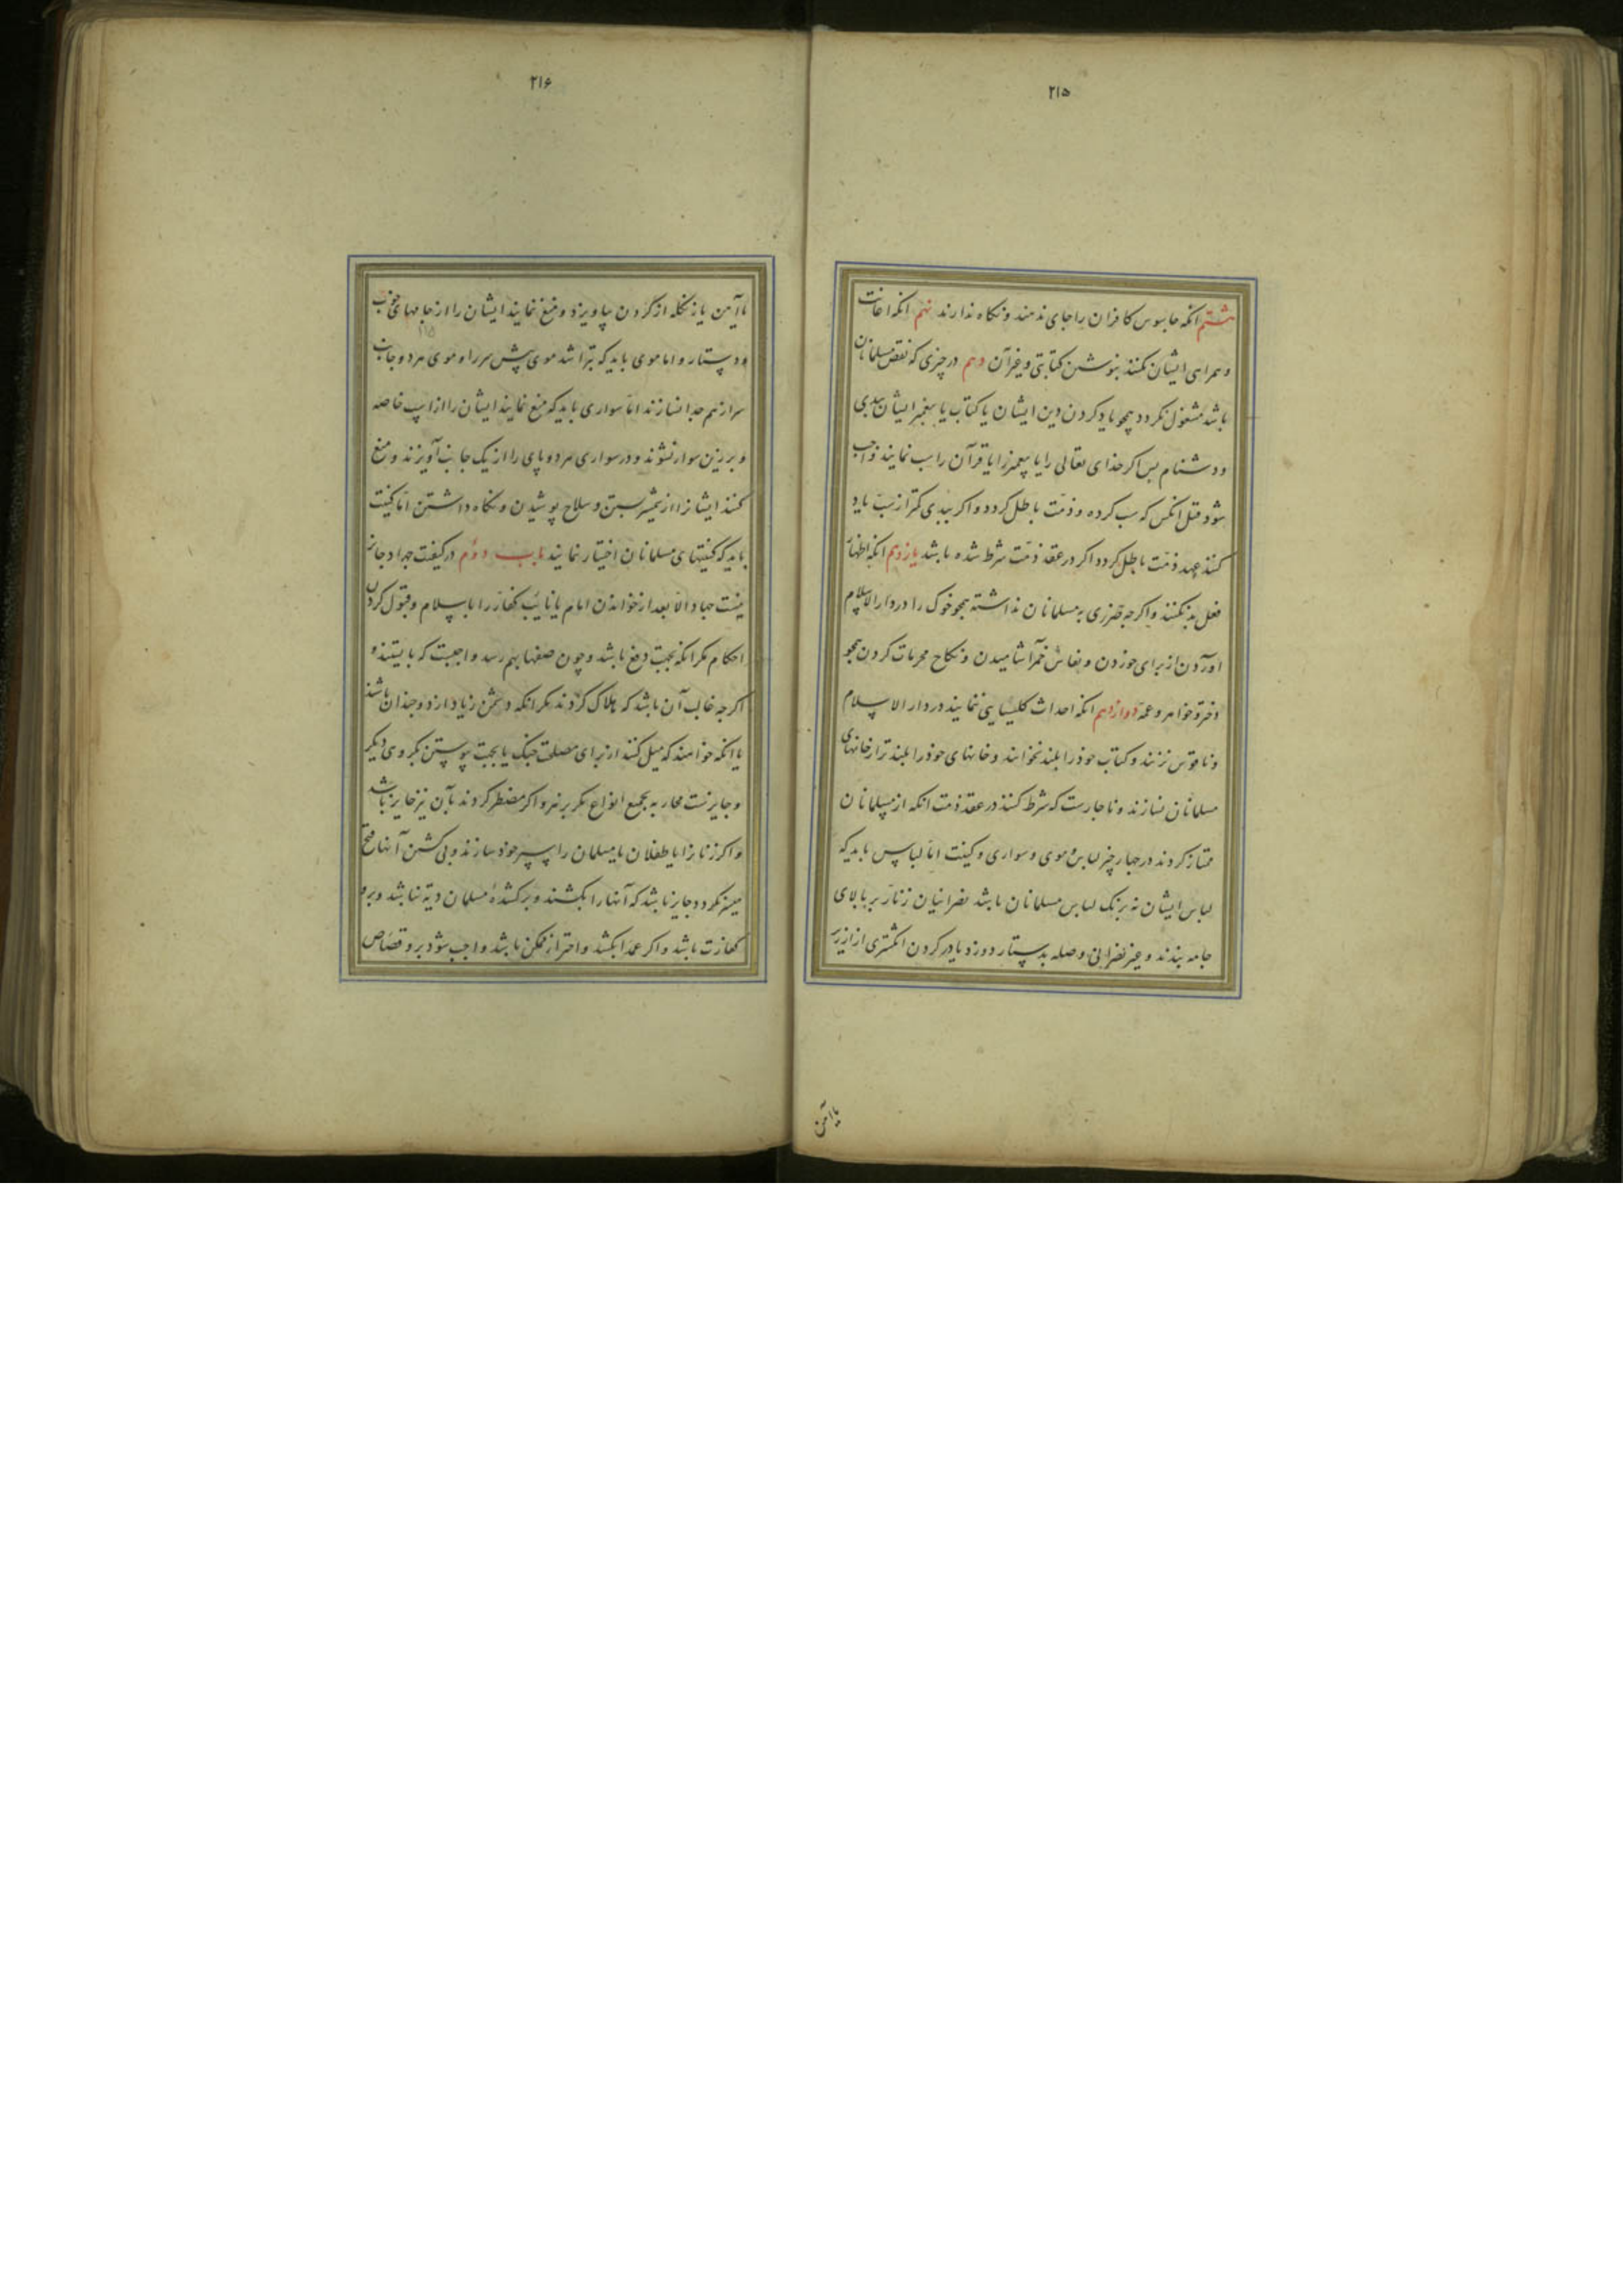 ۲۱۵
هشتم انکه جاسوس کافران را جای ندهند و نکاه ندارند نهم انکه اعانت
و همراهی ایشان نکنند بنوشتن کتابتی و غیرآن دهم در چیزی که نقض مسلمانان
باشد مشغول نکردد همچو یاد کردن دین ایشان یا کتاب یا پیغمبر ایشان ببدی
و دشنام پس اکر خدای تعالی را یا پیغمبر را یا قرآن را سب نمایند واجب
شود قتل انکس که سب کرده و ذمّت باطل کردد و اکر ببدی کمتر از سبّ یاد
کنند عهد ذمّت باطل کردد اکر در عقد ذمّت شرط شده باشد یازدهم انکه اظهار
فعل بد نکنند و اکرچه ضرری به مسلمانان نداشته همچو خوک را در دارالاسلام
اوردن از برای خوردن و بفاش خمر آشامیدن و نکاح محرمات کردن همچو
دختر و خواهر و عمّه دوازدهم انکه احداث کلیسایی ننمایند در دار الاسلام
و ناقوس نزنند و کتاب خود را بلند نخوانند و خانهای خود را بلندتر از خانهای
مسلمانان نسازند و ناچارست که شرط کنند در عقد ذمت انکه از مسلمانان
ممتاز کردند در چهار چیز لباس و موی و سواری و کینت امّا لباس باید که
لباس ایشان نه برنک لباس مسلمانان باشد نصرانیان زنّار بر بالای
جامه بندند و غیر نصرانی وصله بدستار دوزد یا در کردن انکشتری از ارزیز
یا آهن
۲۱۶
یا آهن یا زنکله از کردن بیاویزد و منع نمایند ایشان را از جامهای خوب
و دستار و اما موی باید که بتراشد موی پیش سر را و موی هر دو جانب
سر از هم جدا نسازند امّا سواری باید که منع نمایند ایشان را از اسپ خاصه
و بر زین سوار نشوند و در سواری هر دو پای را از یک جانب آویزند و منع
کنند ایشانرا از شمشیر بستن و سلاح پوشیدن و نکاه داشتن امّا کنیت
باید که کنیتهای مسلمانان اختیار ننمایند باب دوّم در کیفیت جهاد جایز
نیست جهاد الّا بعد از خواندن امام یا نایب کفّار را باسلام و قبول کردن
احکام مکر انکه بجهت دفع باشد و چون صفها بهم رسد واجبست که بایستند و
اکرچه غالب آن باشد که هلاک کردند مکر انکه دشمن زیاد از دو چندان باشند
یا انکه خواهند که میل کنند از برای مصلحت جنک یا بجهت پیوستن بکروی دیکر
و جایزست محاربه بجمیع انواع مکر بزهر و اکر مضطر کردند بآن نیز جایز باشد
و اکر زنانرا یا طفلان یا مسلمان را سپر خود سازند و بی کشتن آنها فتح
میسر نکردد جایز باشد که آنها را بکشند و بر کشندهٔ مسلمان دیة نباشد و برو
کفّارت باشد و اکر عمدا بکشد و احتراز ممکن باشد واجب شود برو قصاص